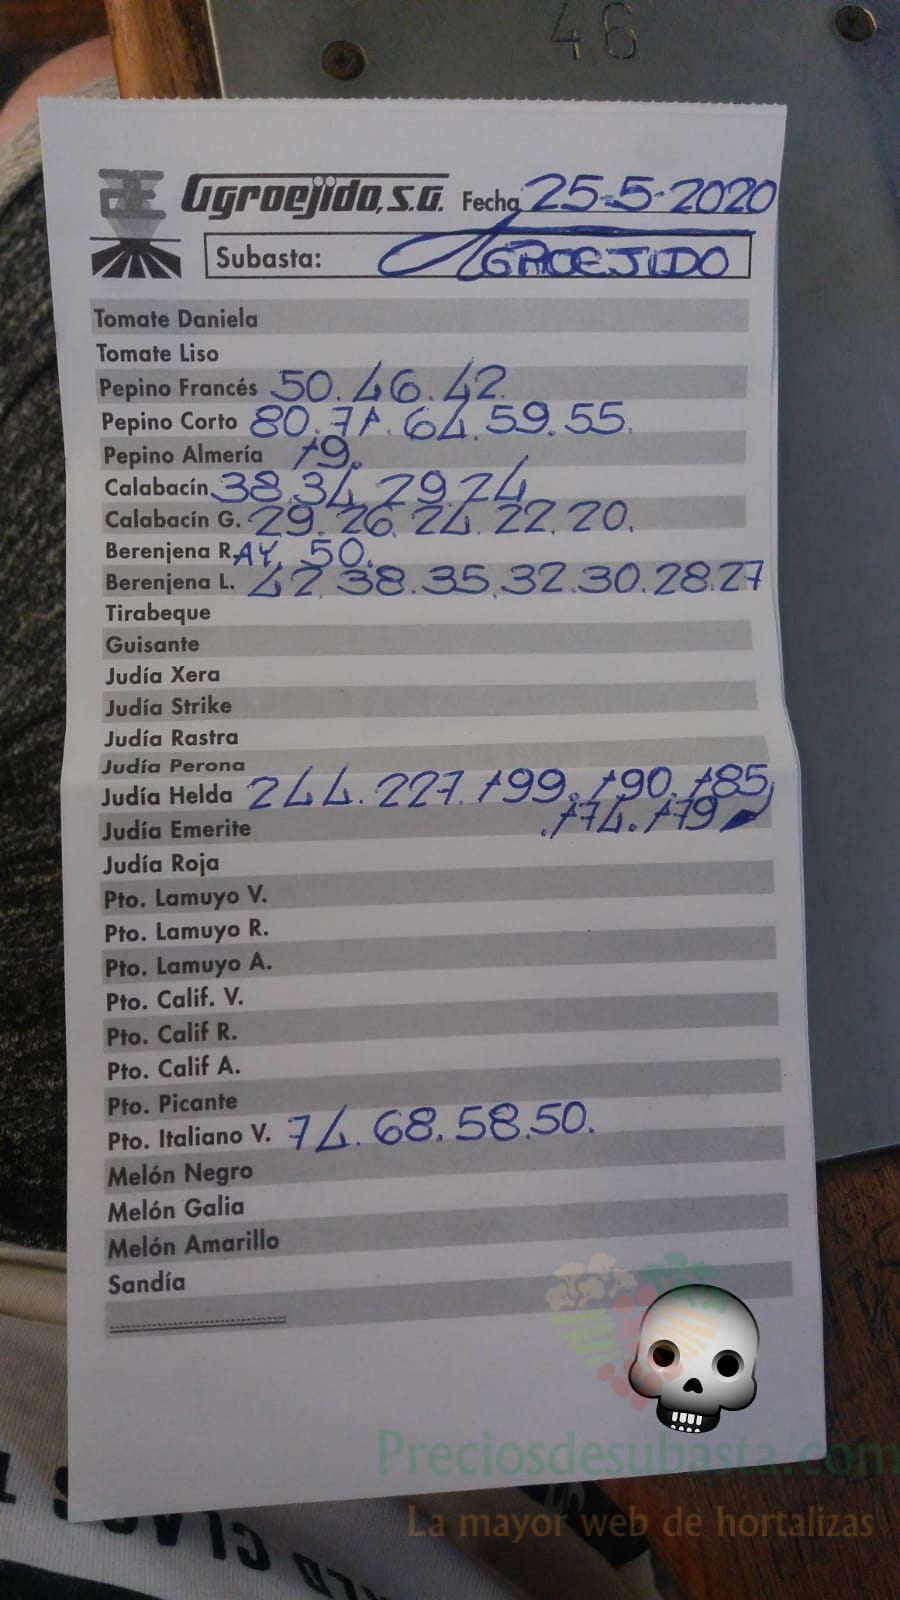 46
Agroejido, S.A. Fecha 25-5-2020
Subasta: AGROEJIDO
Tomate Daniela
Tomate Liso
Pepino Francés 50.46.42.
Pepino Corto 80.71.64.59.55.
Pepino Almería 19.
Calabacín 38.34.29.24
Calabacín G. 29.26.24.22.20.
Berenjena R.AY. 50.
Berenjena L. 42.38.35.32.30.28.27
Tirabeque
Guisante
Judía Xera
Judía Strike
Judía Rastra
Judía Perona
Judía Helda 244.227.199.190.185
Judía Emerite .174.179
Judía Roja
Pto. Lamuyo V.
Pto. Lamuyo R.
Pto. Lamuyo A.
Pto. Calif. V.
Pto. Calif R.
Pto. Calif A.
Pto. Picante
Pto. Italiano V. 74.68.58.50.
Melón Negro
Melón Galia
Melón Amarillo
Sandía
Preciosdesubasta.com
La mayor web de hortalizas